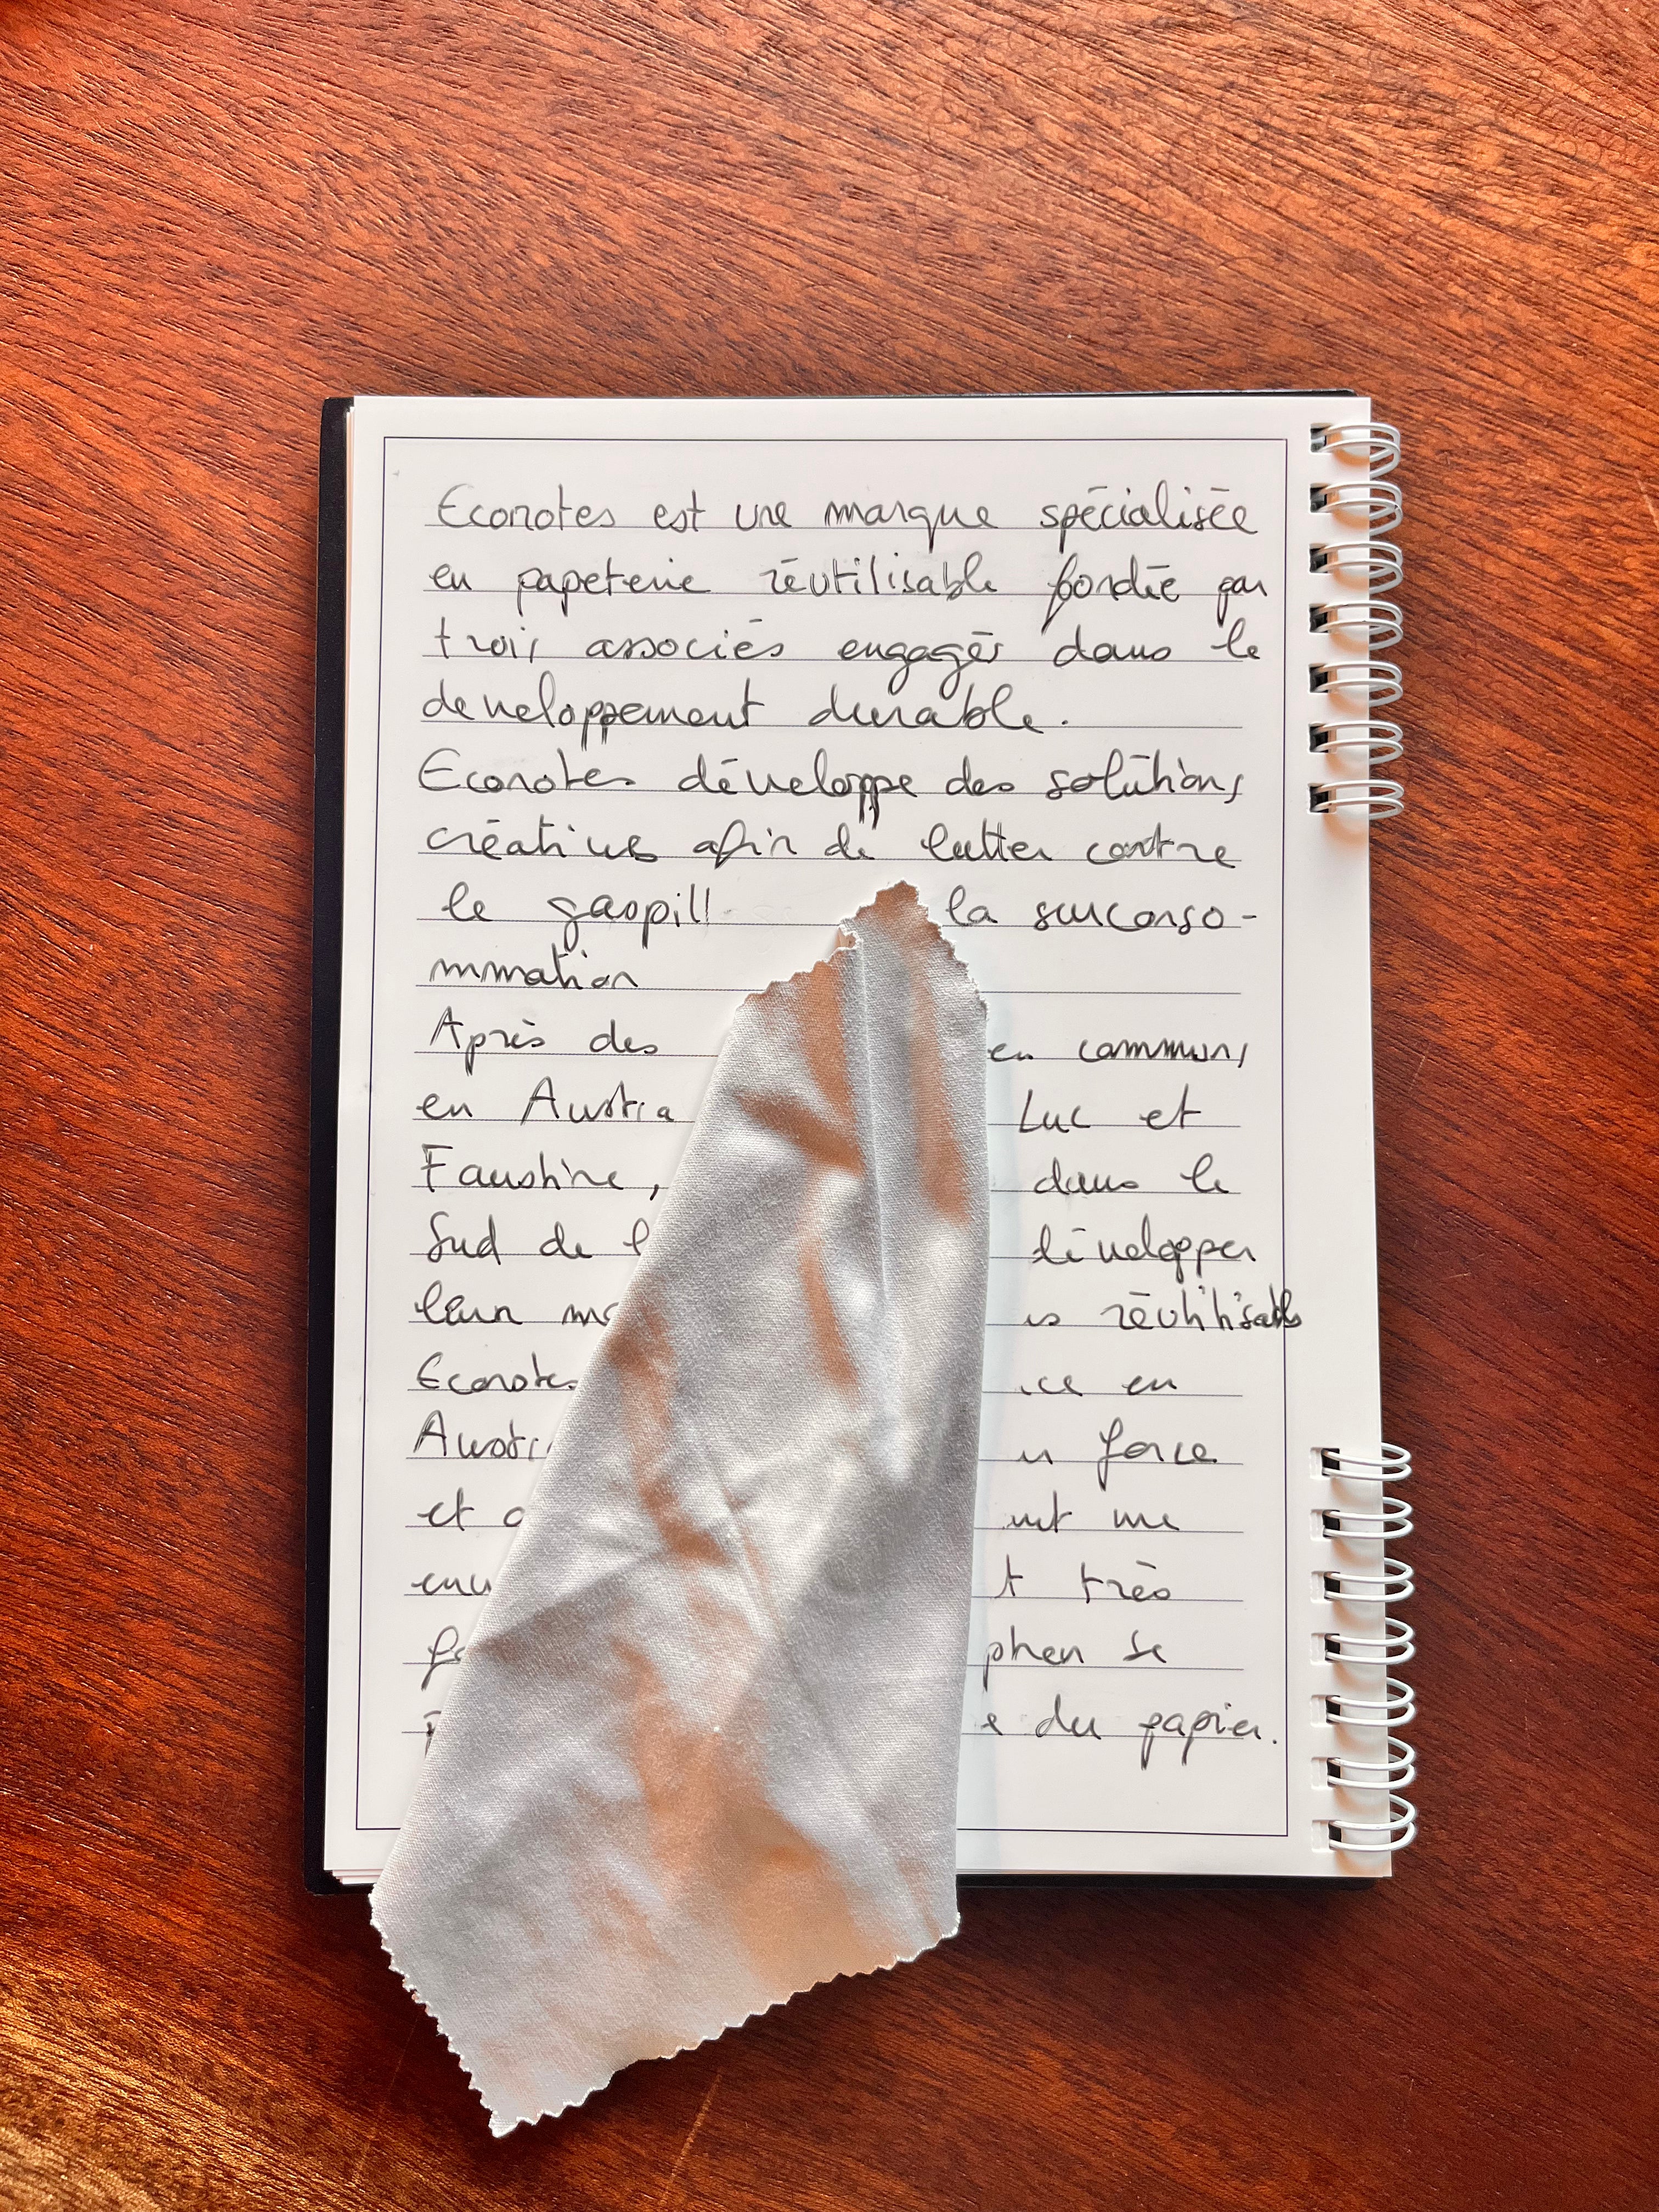 Econotes est une marque spécialisée
en papeterie réutilisable fondée par
trois associés engagés dans le
developpement durable.
Econotes développe des solutions
créatives afin de lutter contre
le gaspill la surconso-
mmation
Après des en commun,
en Austra Luc et
Faustine, dans le
Sud de l développer
leur réutilisables
Econotes en
force
et une
très
phen se
du papier.